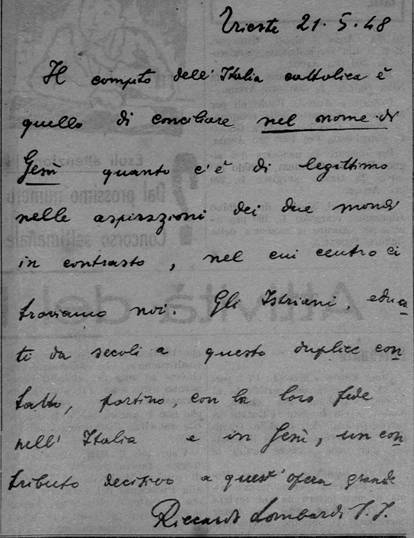 Trieste 21.5.48
Il compito dell'Italia cattolica è
quello di conciliare nel nome di
Gesù quanto c'è di legittimo
nelle aspirazioni dei due mondi
in contrasto, nel cui centro ci
troviamo noi. Gli Istriani, educa-
ti da secoli a questo duplice con-
tatto, portino, con la loro fede
nell'Italia e in Gesù, un con
tributo decisivo a quest'opera grande
Riccardo Lombardi S.J.